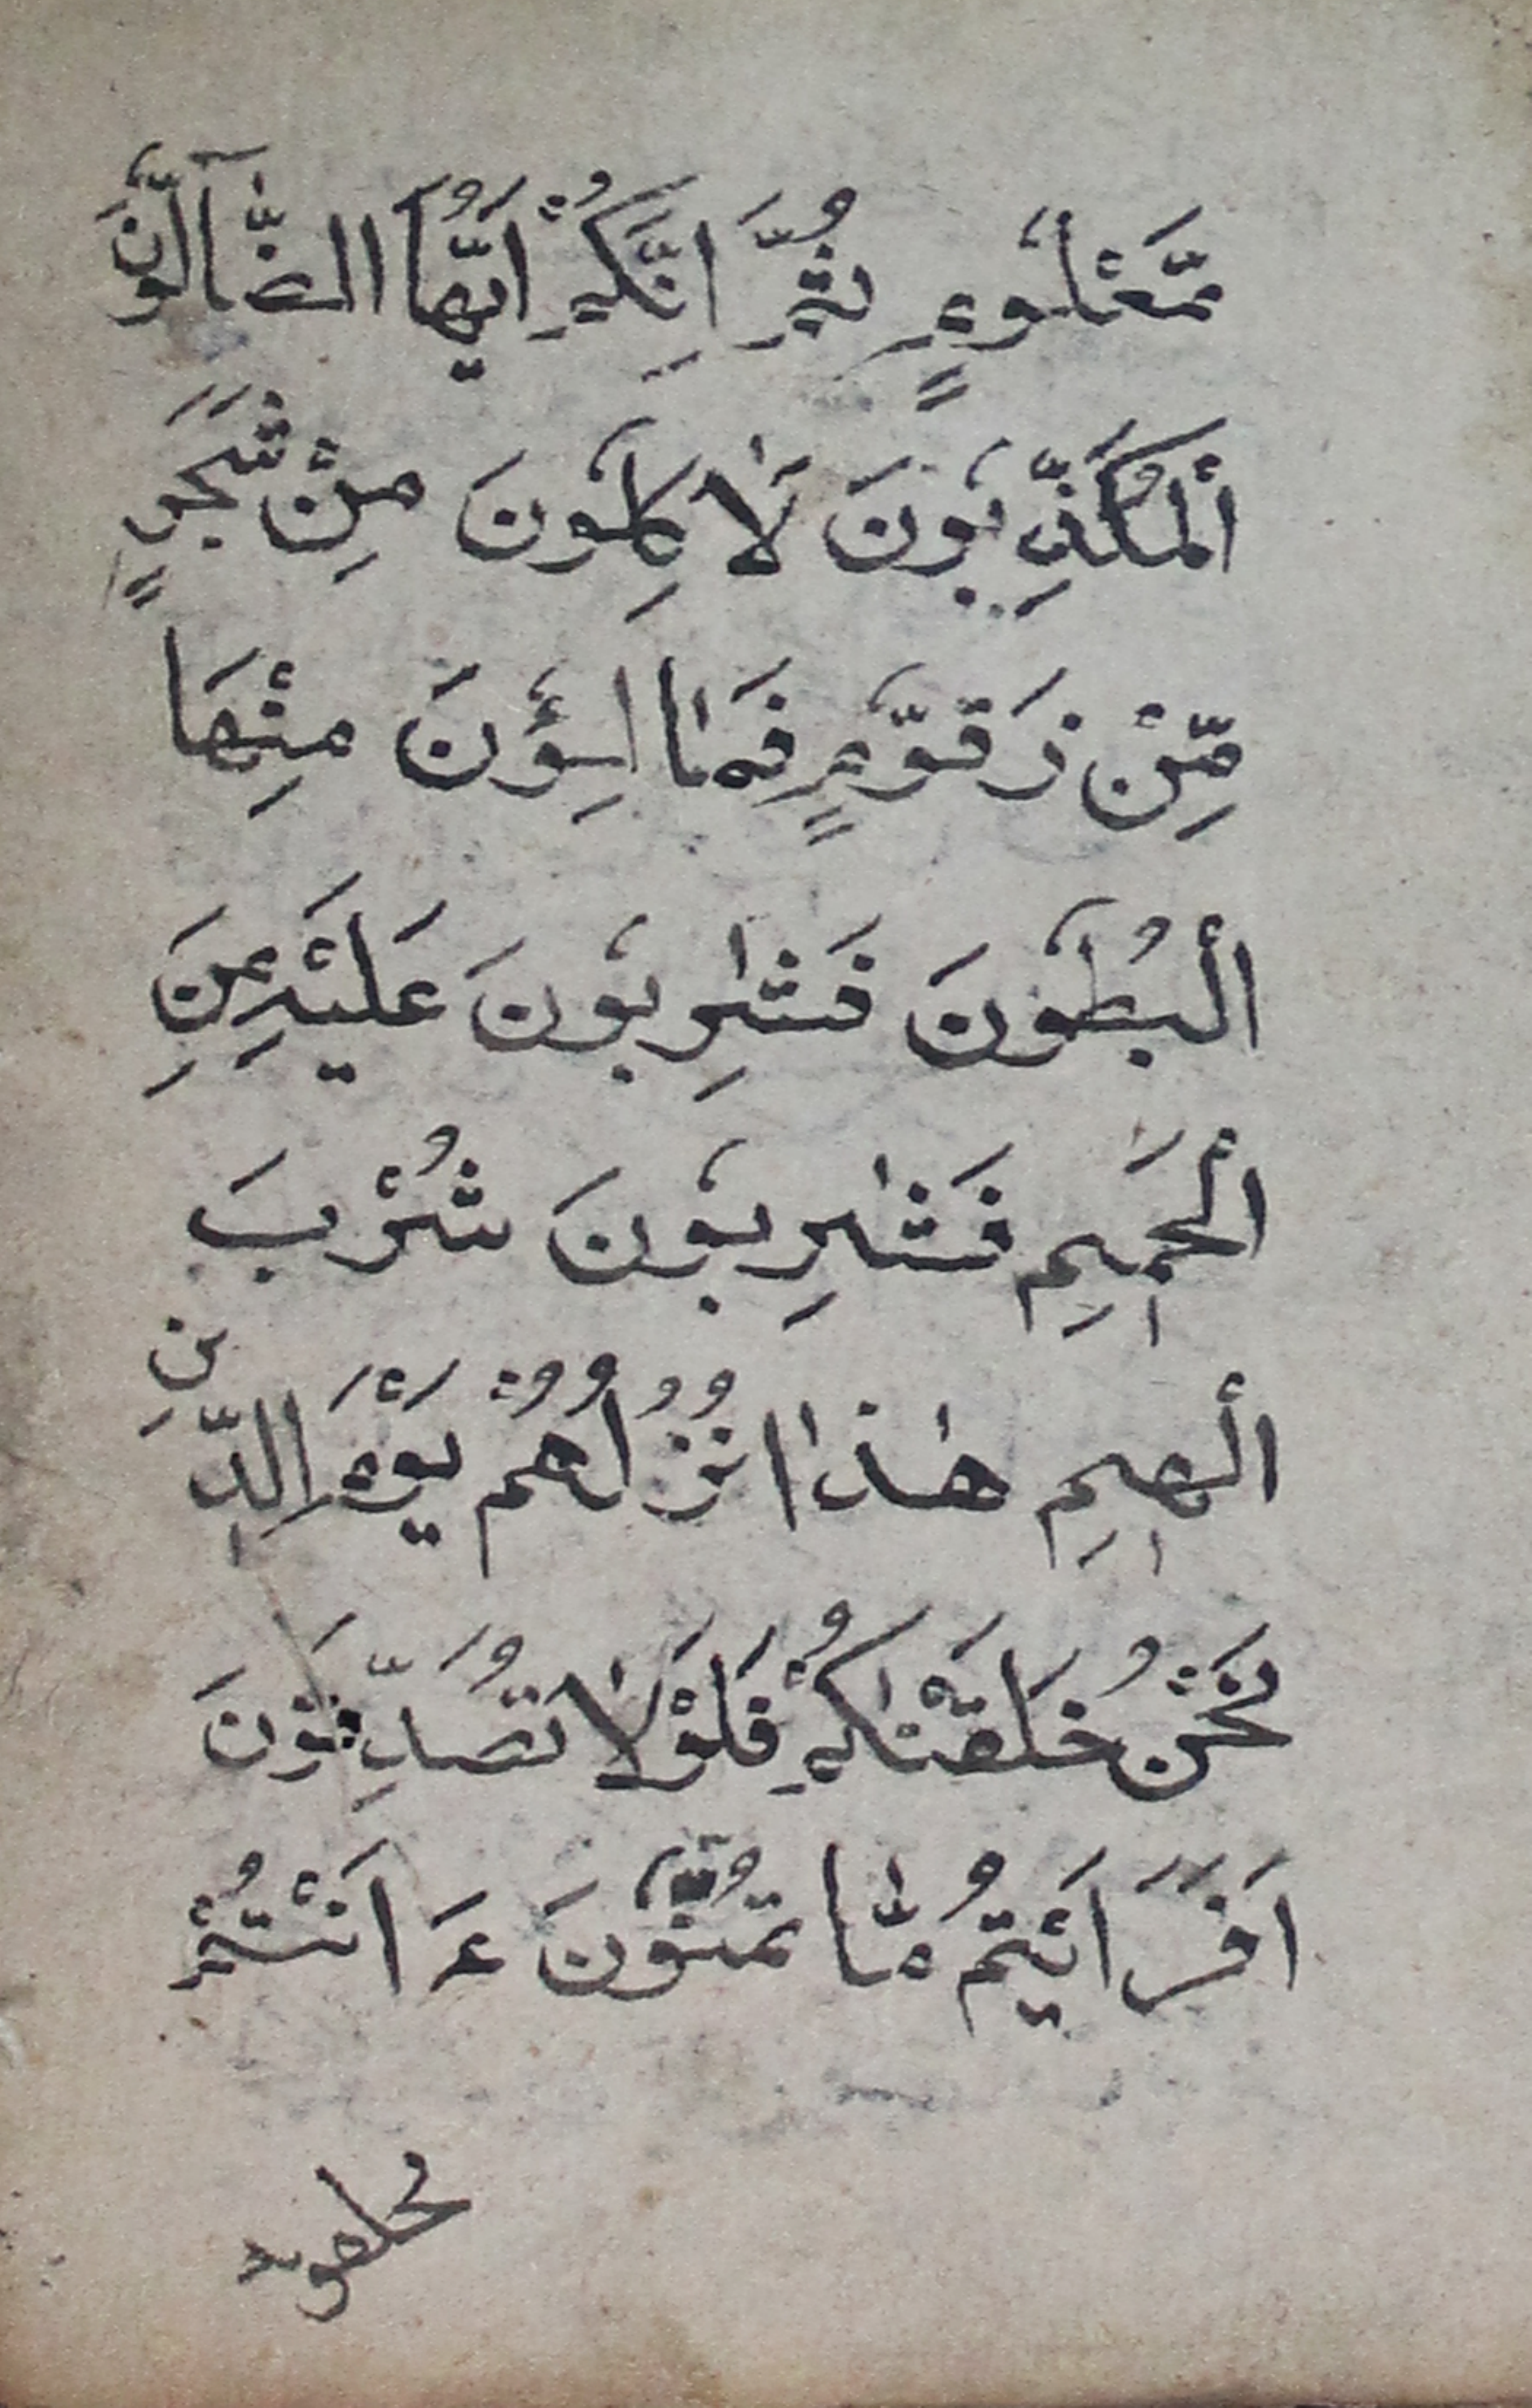 مَّعْلُوْمٍ ثُمَّ اِنَّكُمْ اَيُّهَا الضَّآلُّوْنَ
الْمُكَذِّبُوْنَ لَاٰكِلُوْنَ مِنْ شَجَرٍ
مِّنْ زَقُّوْمٍ فَمَالِـُٔوْنَ مِنْهَا
الْبُطُوْنَ فَشٰرِبُوْنَ عَلَيْهِ مِنَ
الْحَمِيْمِ فَشٰرِبُوْنَ شُرْبَ
الْهِيْمِ هٰذَا نُزُلُهُمْ يَوْمَ الدِّيْنِ
نَحْنُ خَلَقْنٰكُمْ فَلَوْلَا تُصَدِّقُوْنَ
اَفَرَاَيْتُمْ مَّا تُمْنُوْنَ ءَاَنْتُمْ
تخلقونه